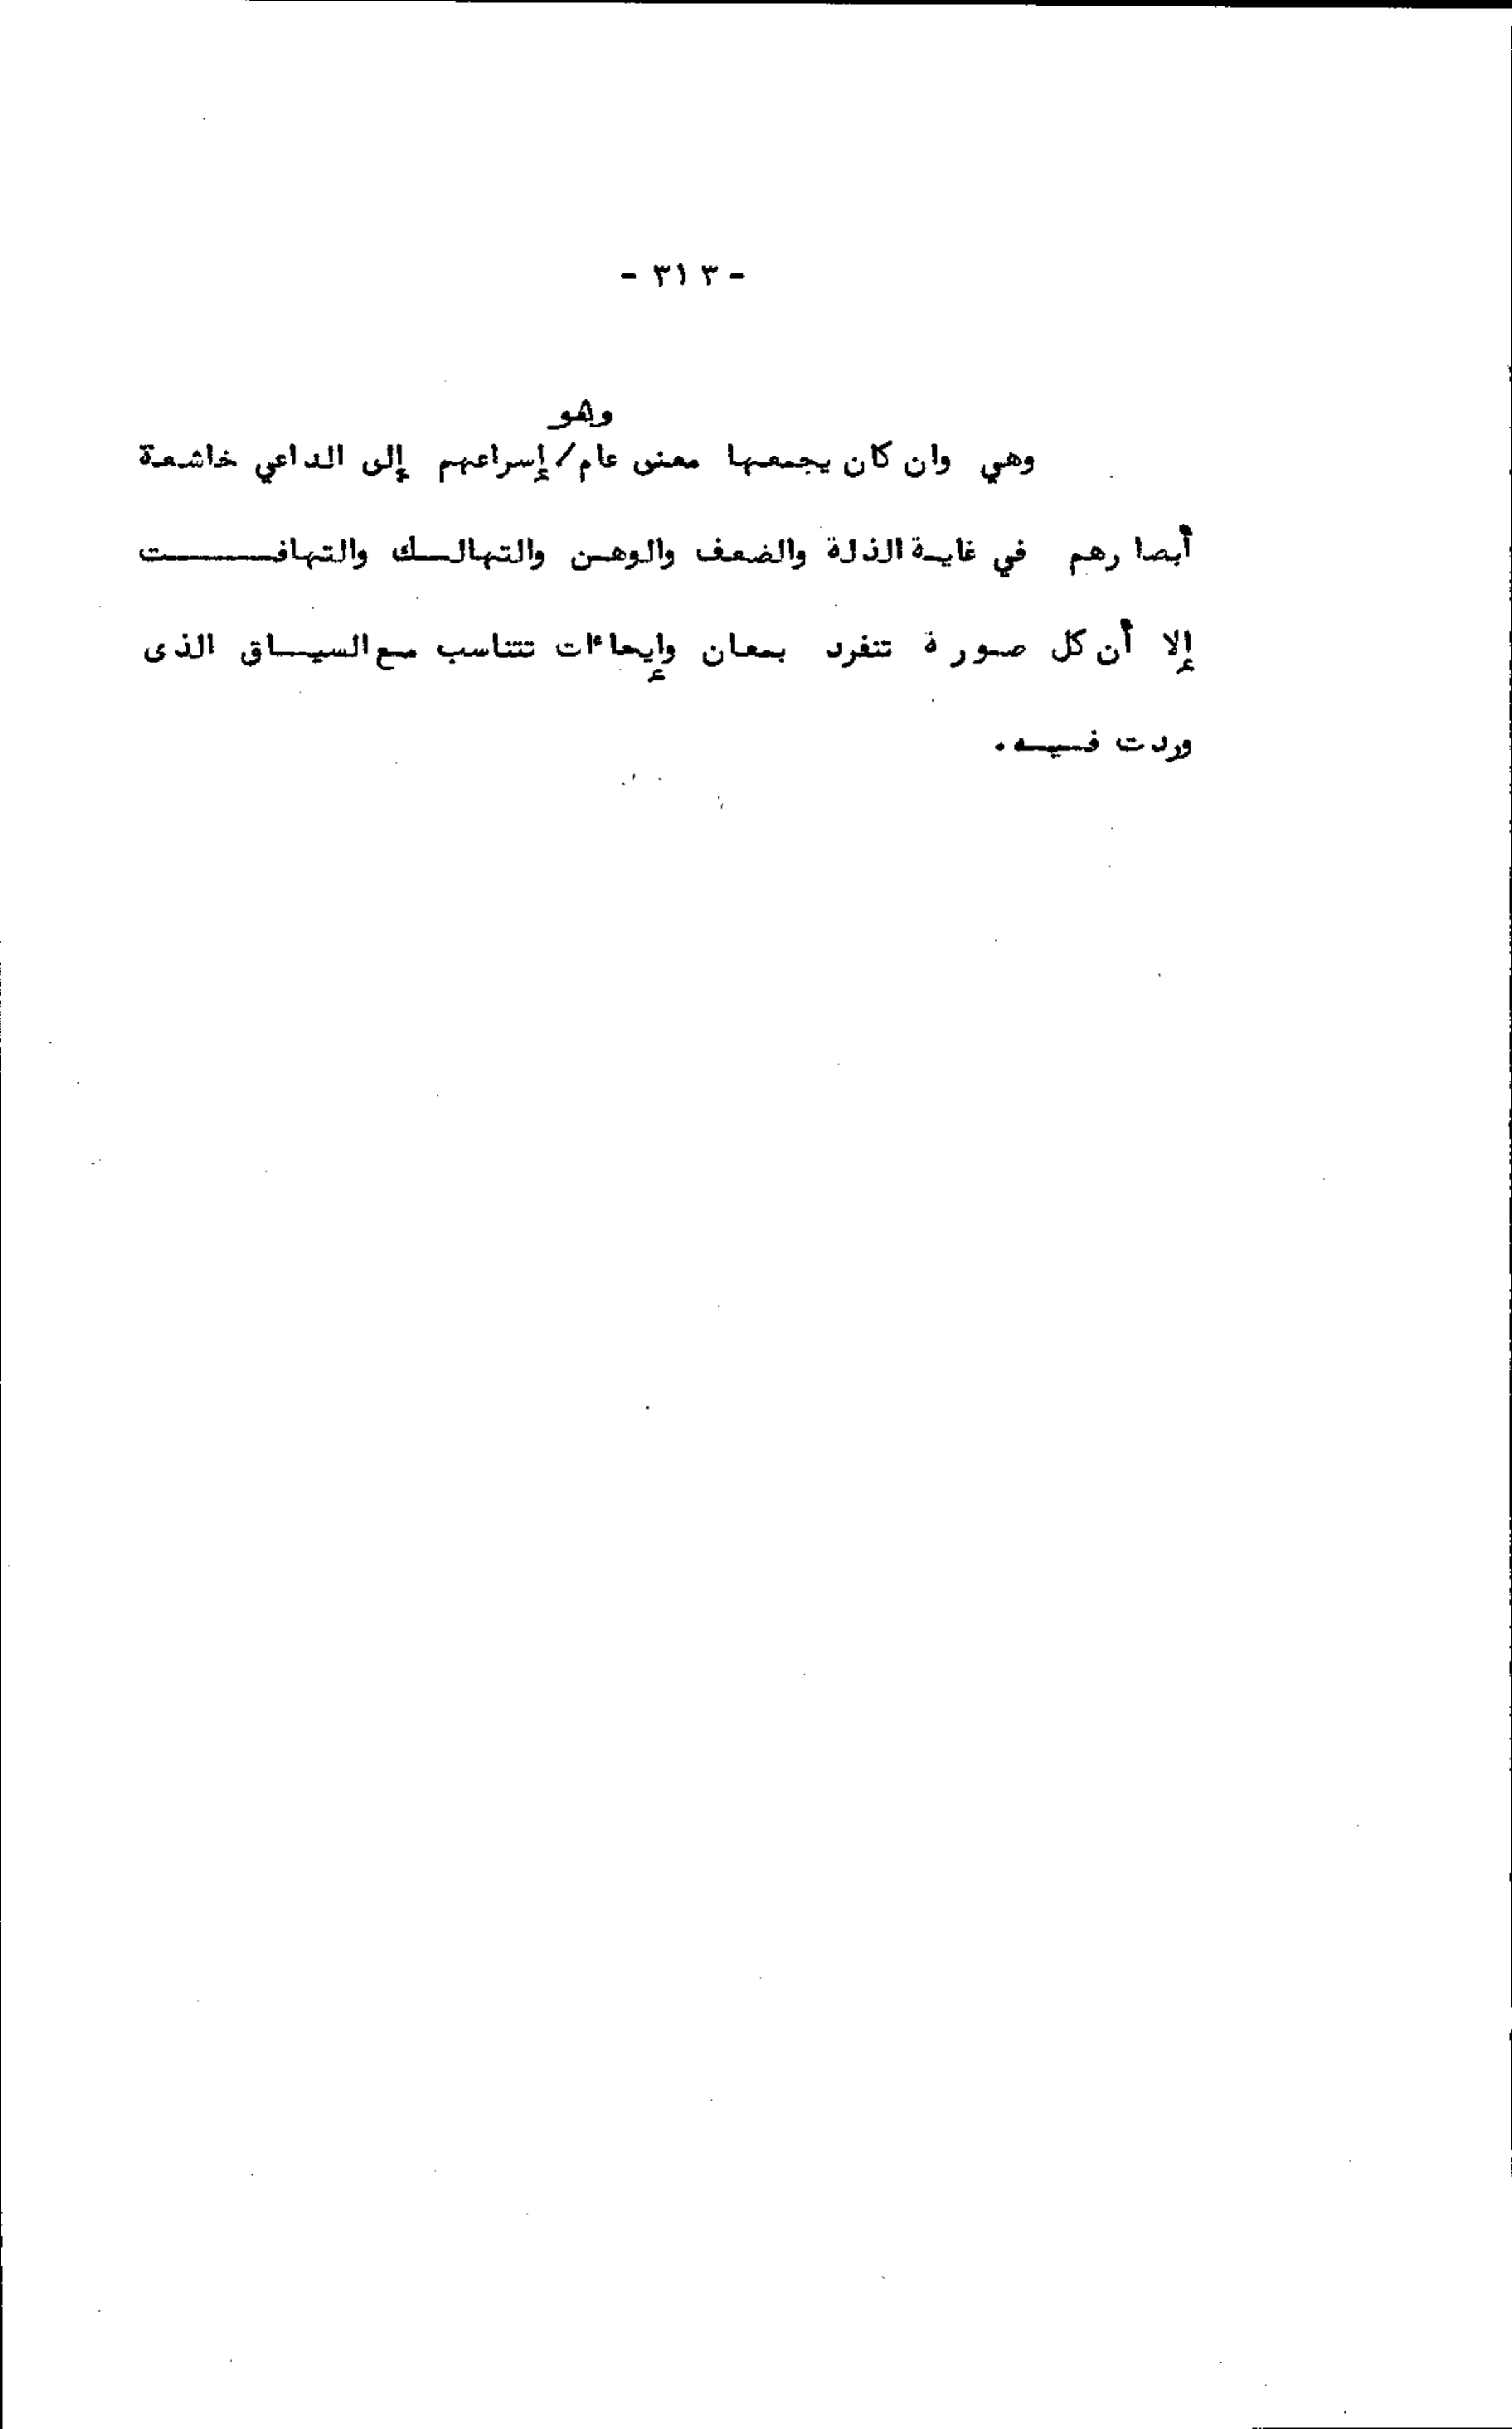 - ٣١٣ -
وهي وان كان يجمعها معنى عام / وهو إسراعهم إلى الداعي خاشعة
أبصارهم في غاية الذلة والضعف والوهن والتهالك والتهافت
إلا أن كل صورة تتفرد بمعان وإيحاءات تتناسب مع السياق الذى
وردت فيه .